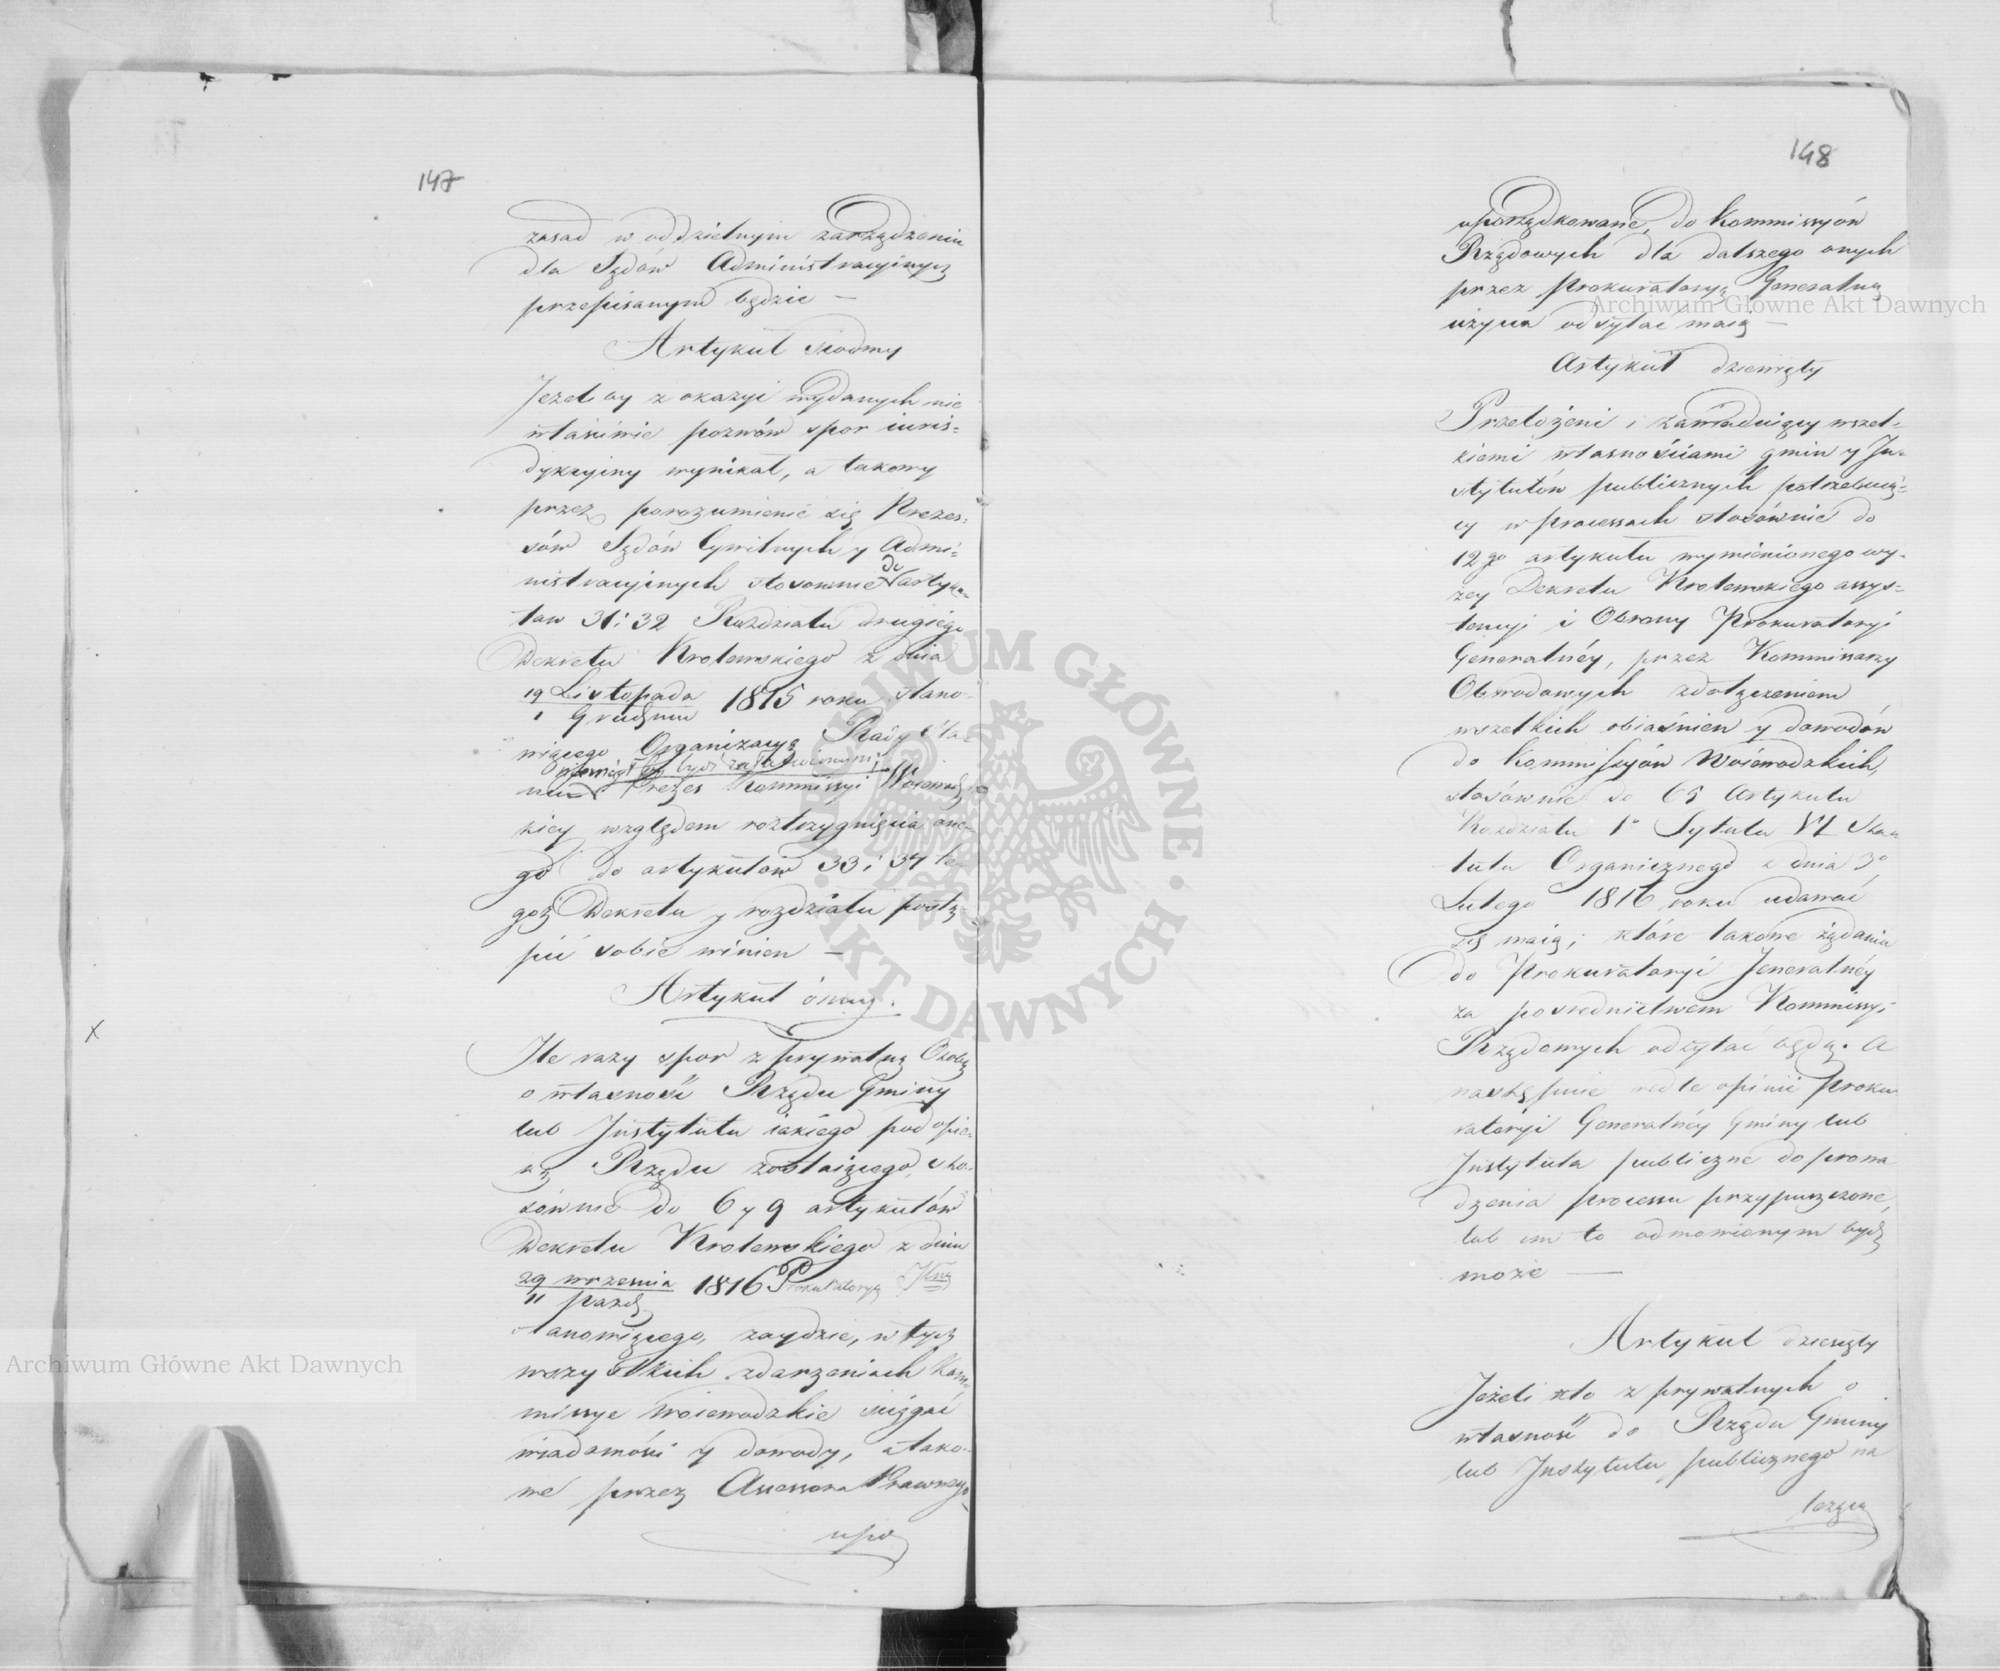 147
zasad w oddzielnym zarządzeniu
dla Sądów Administracyinych
przepisanym będzie —
Artykuł siodmy
Jeżeliby z okazyi wydanych nie
właściwie pozwów spor iuris=
dykcyiny wynikał, a takowy
przez porozumienie się Prezes=
sów Sądów Cywilnych y Admi=
nistracyinych stosownie do artyku=
łów 31 i 32 Rozdziału drugiego
Dekretu Krolewskiego z dnia
19 Listopada / 1 Grudnia 1815 roku stano-
wiącego Organizacyą Rady Sta-
nu Prezes Kommissyi Woiewodz
kiey względem rozstrzygnięcia one-
go do artykułów 33 i 34 te-
goż Dekretu y rozdziału postą-
pić sobie winien —
Artykuł ósmy.
X
Ile razy spor z prywatną Osobą
o własność Rządu Gminy
lub Instytutu iakiego pod opie-
ką Rządu zostaiącego, sto-
sównie do 6 y 9 artykułów
Dekretu Krolewskiego z dnia
29 września / 11 Pazdz 1816 Prokuratoryą
stanowiącego, zaydzie, w tych
wszystkich zdarzeniach Kom-
missye Woiewodzkie ściągać
wiadomości y dowody, a tako-
we przez Assessora Prawnego
upo
148
uporządkowane, do Kommissyów
Rządowych dla dalszego onych
przez Prokuratoryą Generalną
użycia odsyłać maią —
Artykuł dziewiąty
Przełożeni i zawiaduiący wszel-
kiemi własnościami gmin y In-
stytutów publicznych potrzebuią-
cy w processach stosównie do
12go artykułu wymienionego wy-
żey Dekretu Krolewskiego assys-
tencyi i Obrony Prokuratoryi
Generalnéy, przez Kommissarzy
Obwodowych z dołączeniem
wszelkich obiaśnień y dowodów
do Kommissyów Woiewodzkich,
stosównie do 65 Artykułu
Rozdziału 1o Tytułu VI Sta-
tutu Organicznego z dnia 3o
Lutego 1816 roku udawać
się maią; które takowe żądania
do Prokuratoryi Jeneralnéy
za posrednictwem Kommissyi
Rządowych odsyłać będą. A
następnie wedle opinii Proku-
ratoryi Generalnéy Gminy lub
Instytuta publiczne do prowa
dzenia processu przypuszczone,
lub im to odmowionym bydź
może —
Artykuł dziesiąty
Jeżeli kto z prywatnych o
własność do Rządu Gminy
lub Instytutu publicznego na
leżącą
Archiwum Główne Akt Dawnych
Archiwum Główne Akt Dawnych
ARCHIWUM GŁÓWNE AKT DAWNYCH